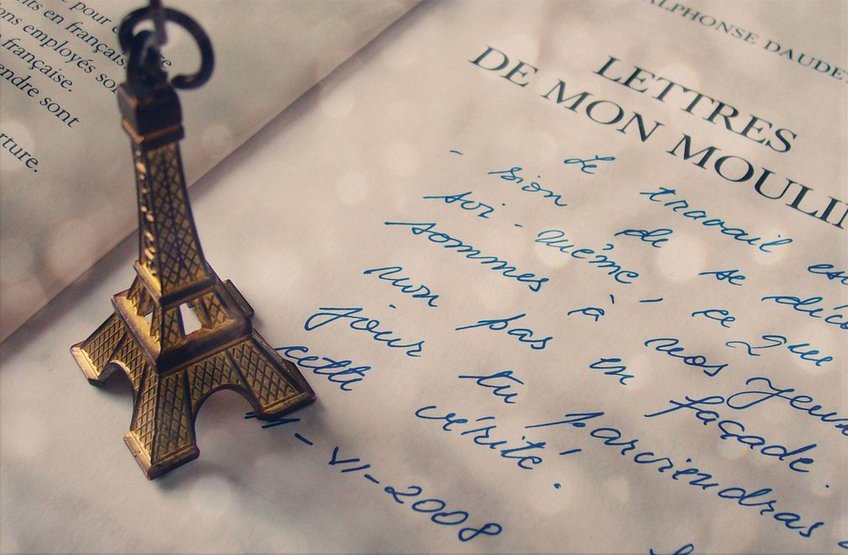 pour
en français
employés
française.
sont
ALPHONSE DAUDET
LETTRES
DE MON MOULIN
Le travail
- sion de se
soi-même, ce que
sommes à nos yeux
non pas en façade.
jour tu parviendras
cette vérité.
VI-2008